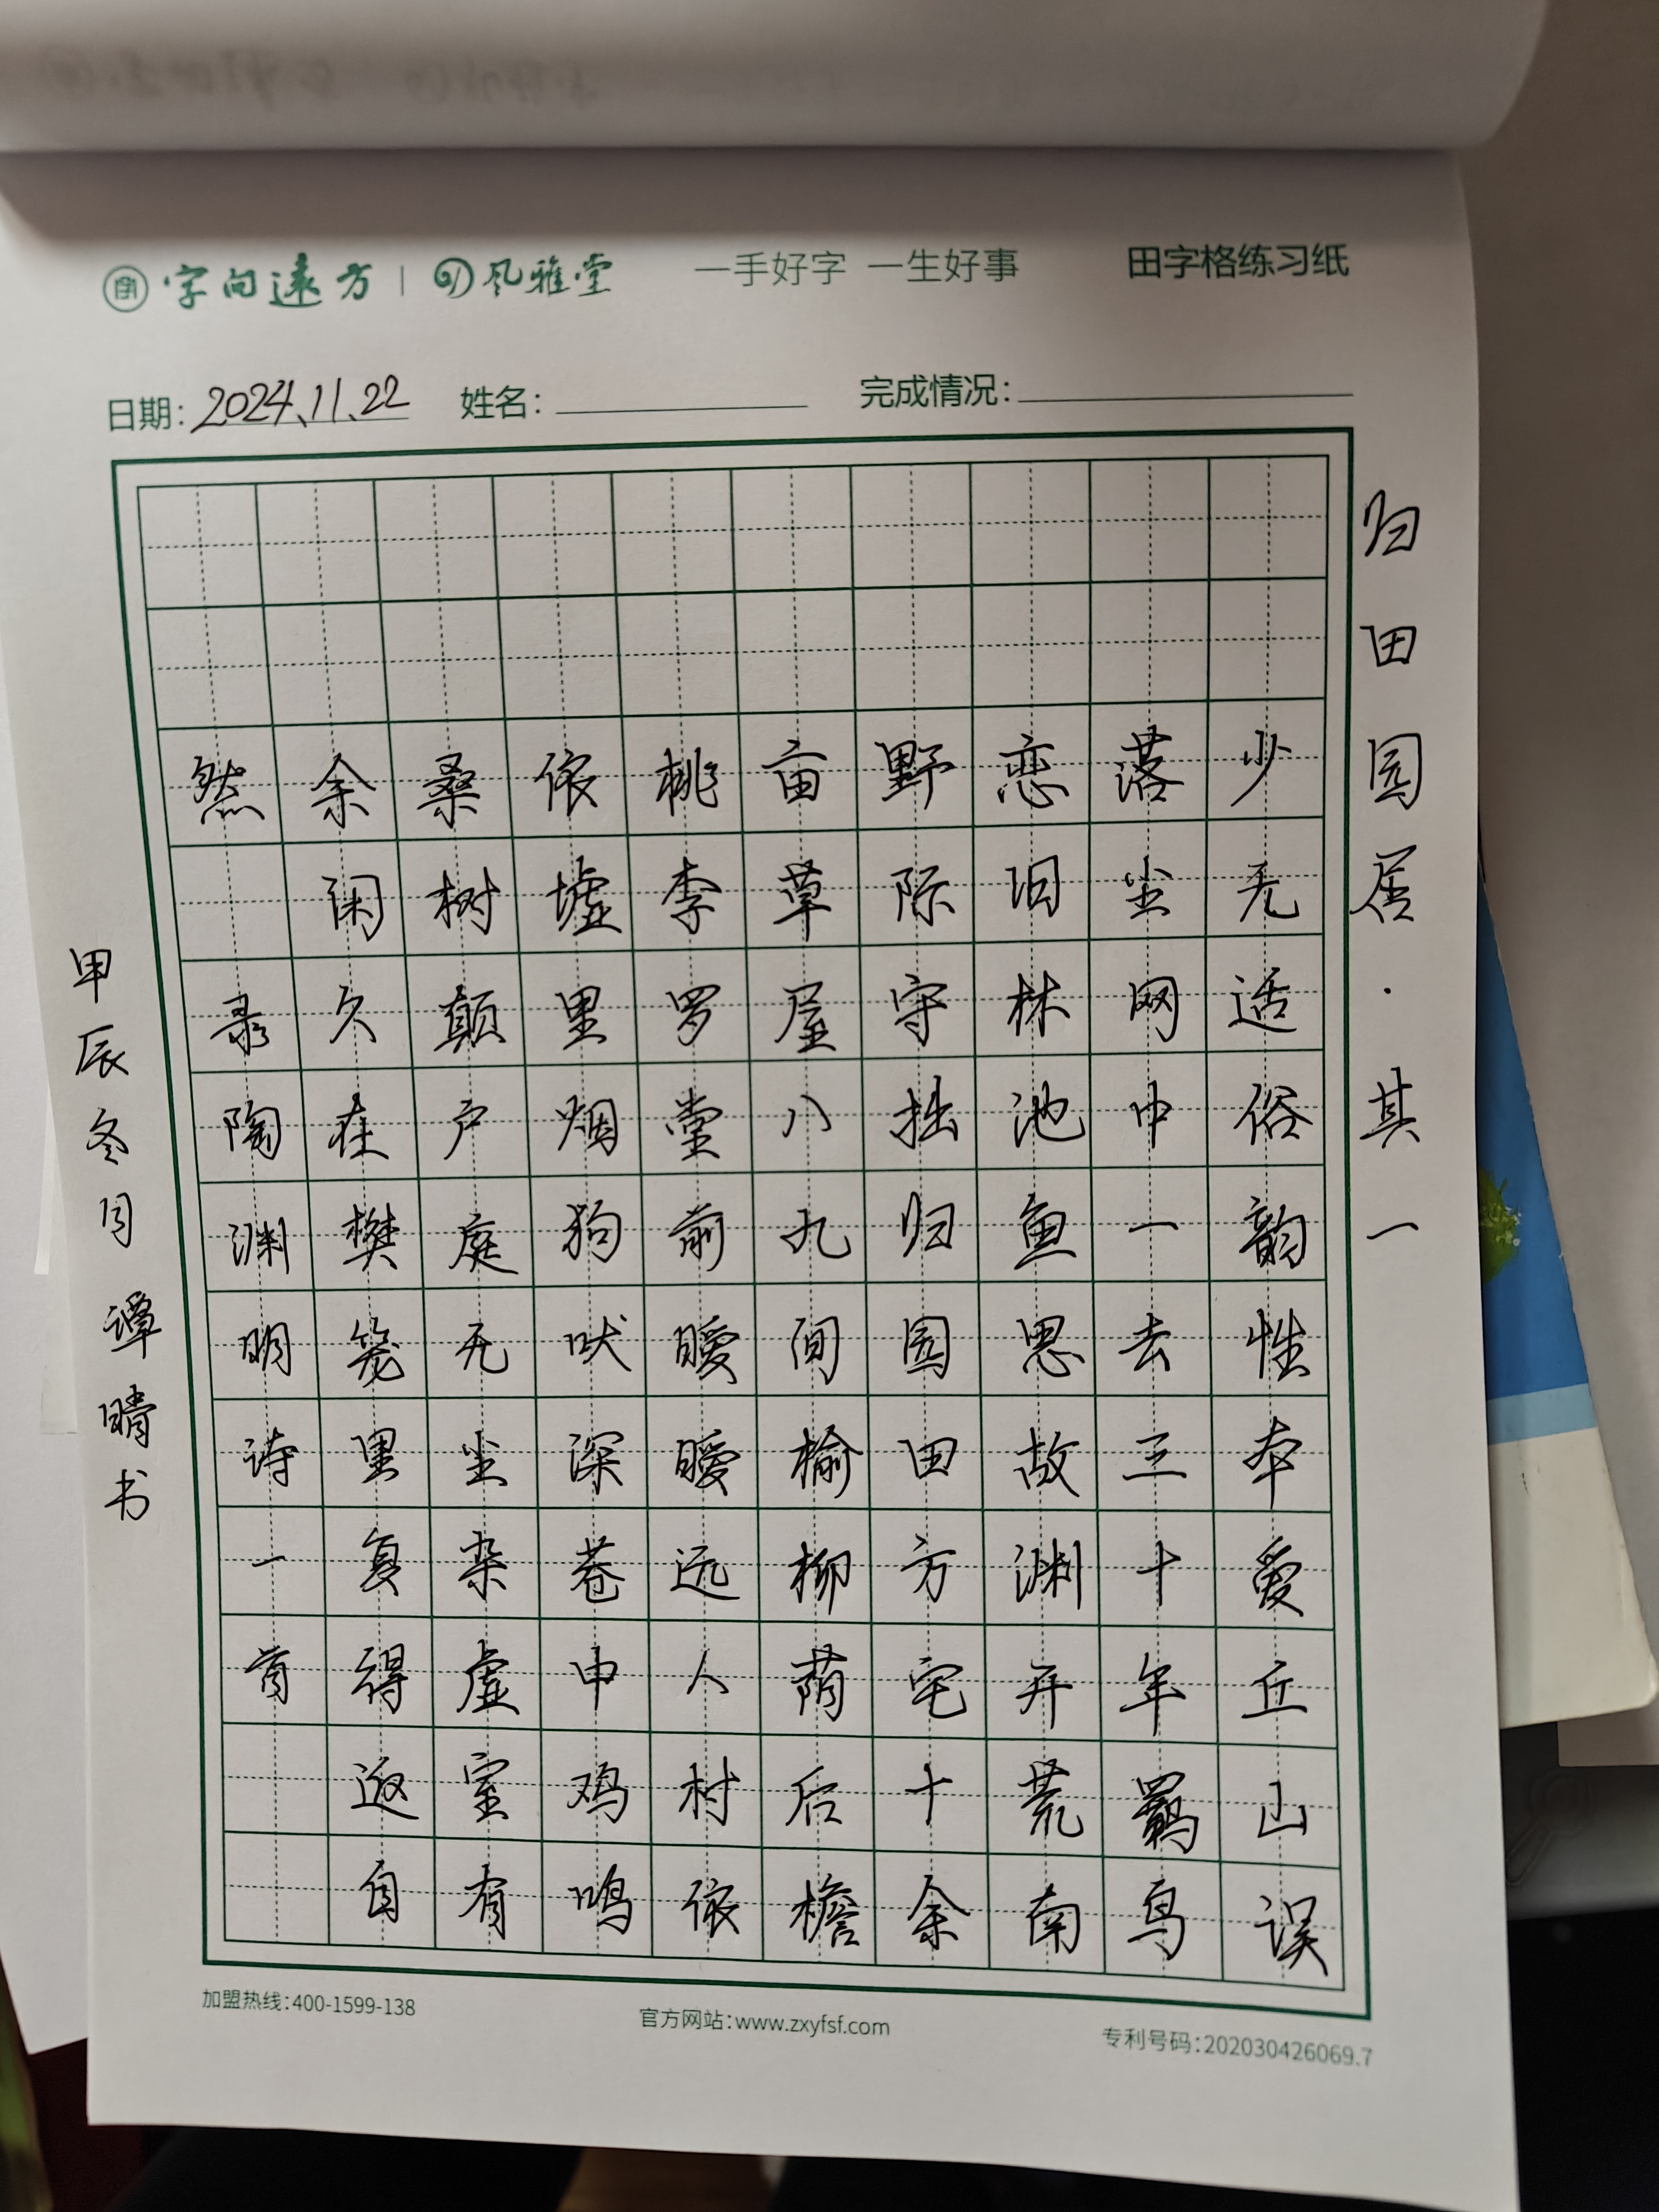 字向遠方 | 风雅堂 一手好字 一生好事 田字格练习纸
日期: 2024、11、22 姓名: 完成情况:
归田园居·其一
少无适俗韵性本爱丘山误
落尘网中一去三十年羁鸟
恋旧林池鱼思故渊开荒南
野际守拙归园田方宅十余
亩草屋八九间榆柳荫后檐
桃李罗堂前暧暧远人村依
依墟里烟狗吠深巷中鸡鸣
桑树颠户庭无尘杂虚室有
余闲久在樊笼里复得返自
然 录陶渊明诗一首
甲辰冬月 谭晴书
加盟热线:400-1599-138 官方网站:www.zxyfsf.com 专利号码:202030426069.7